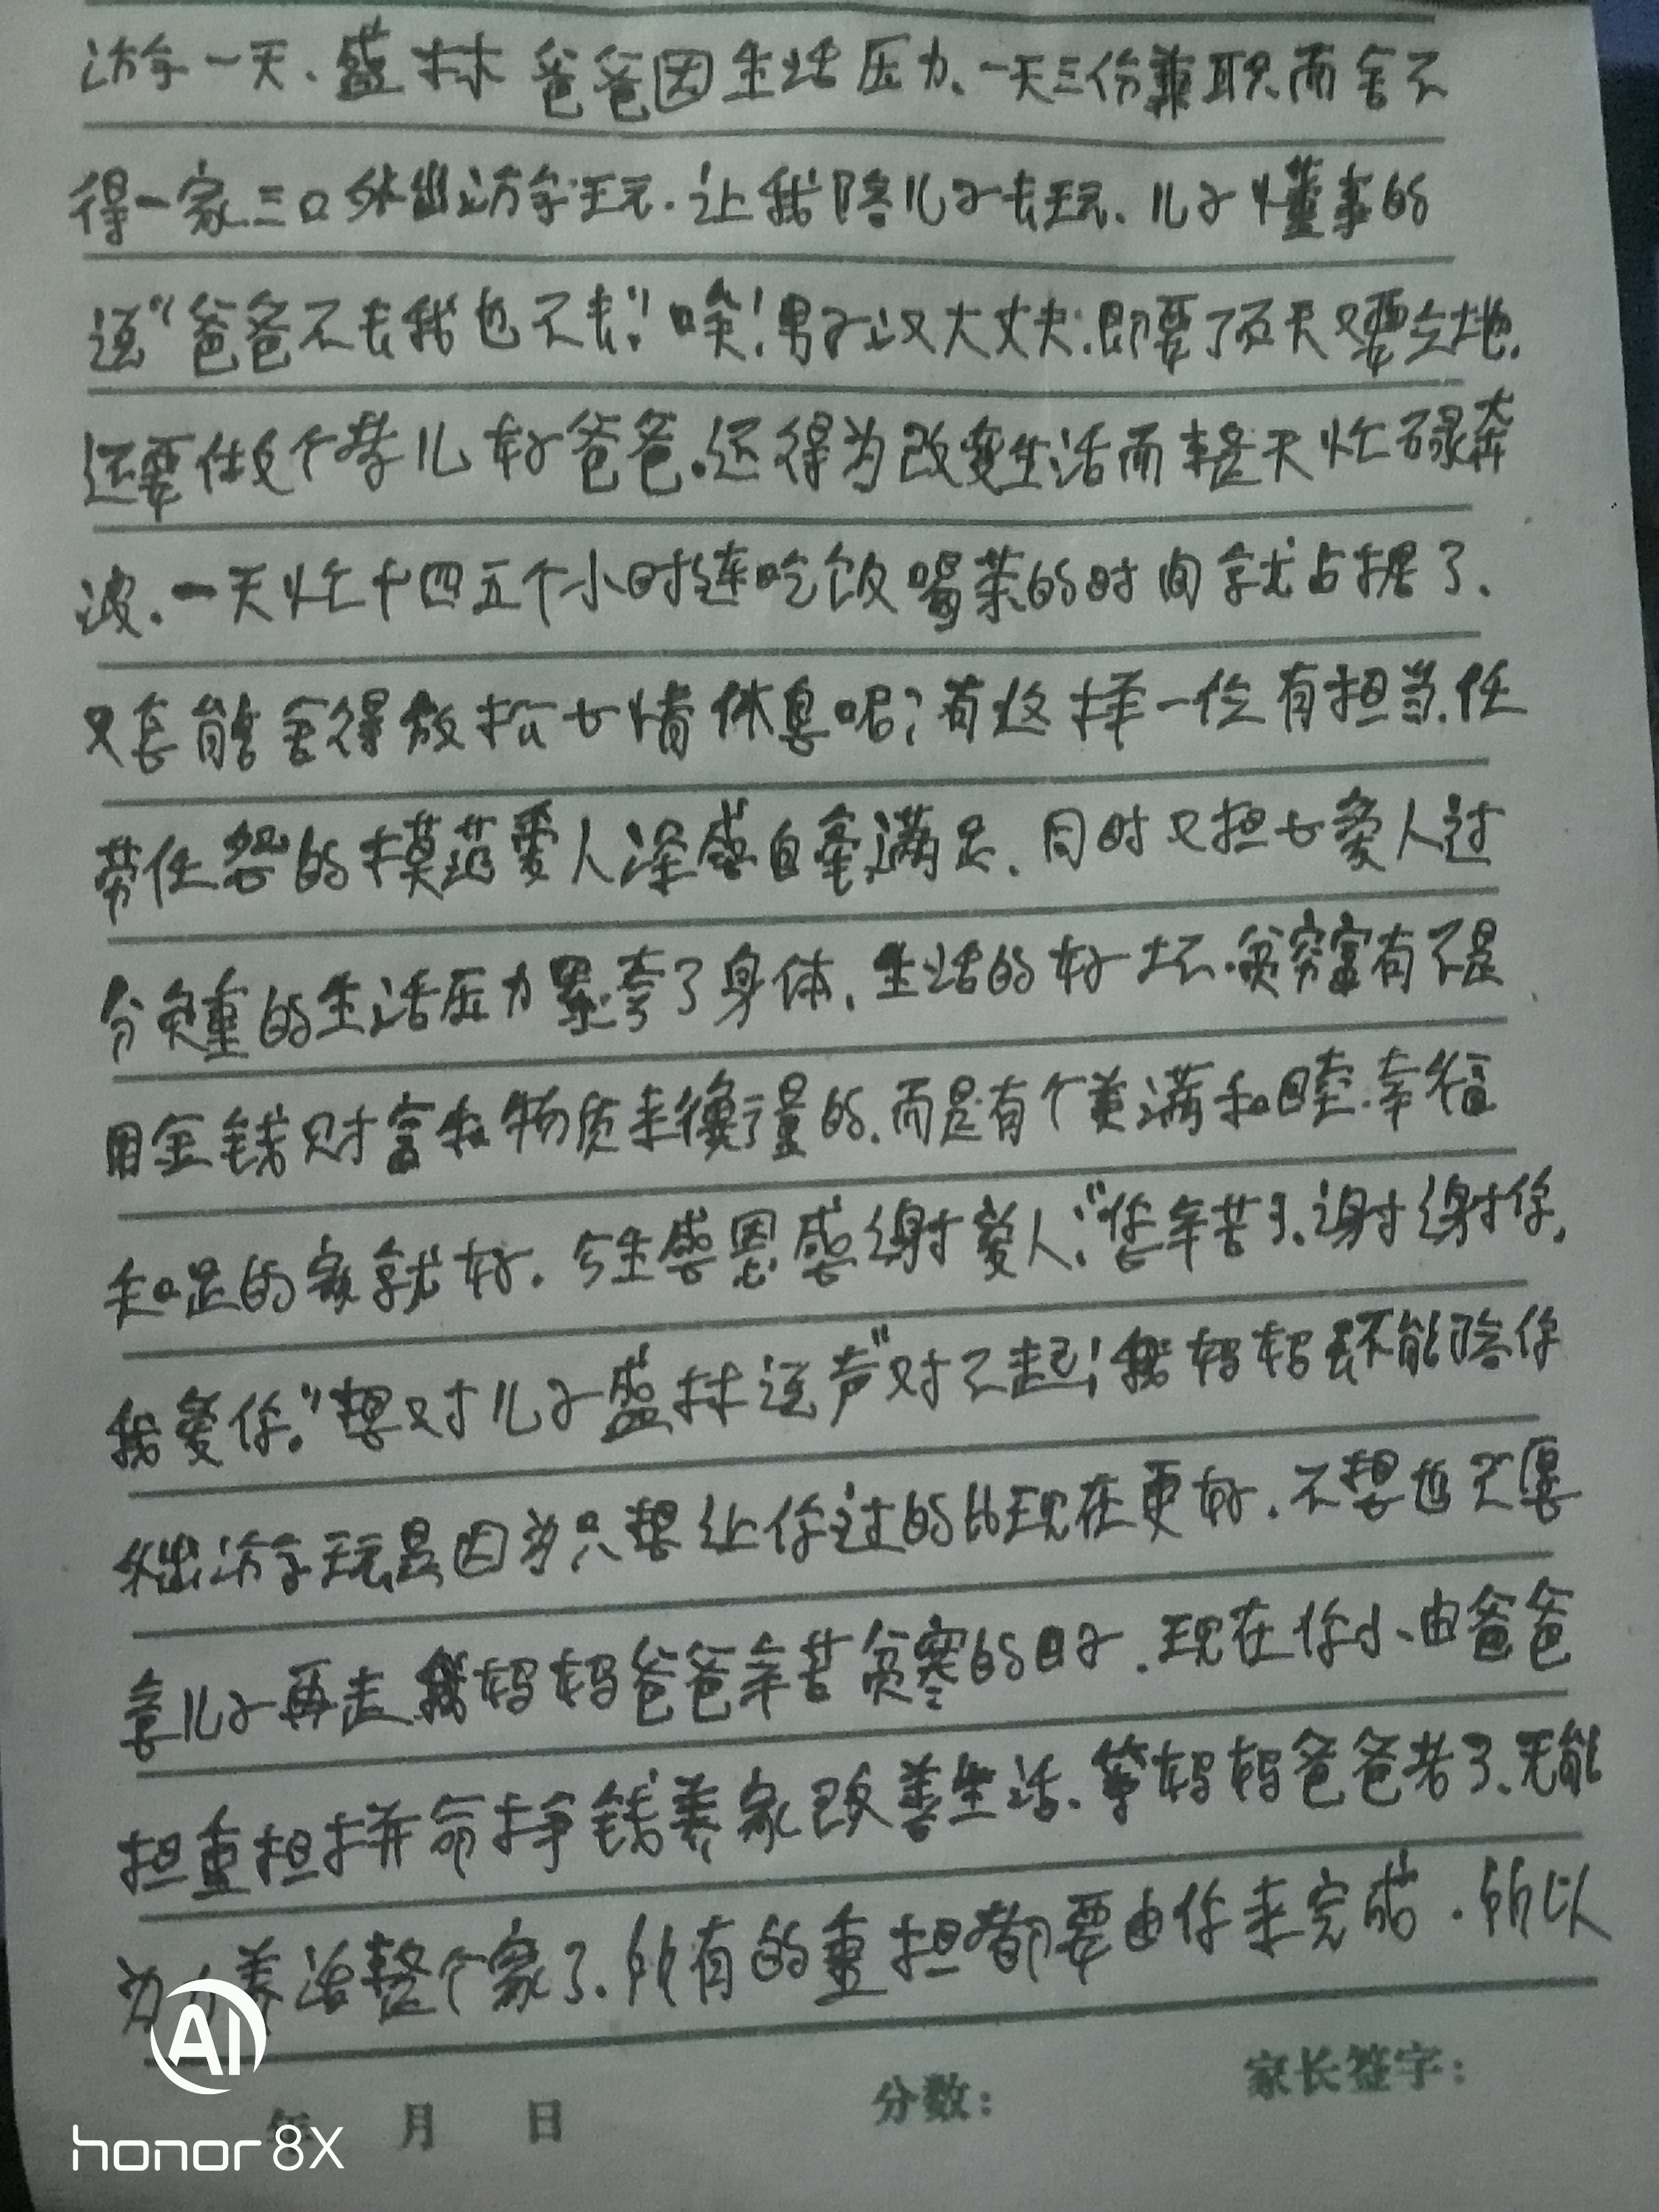 游一天、盛林爸爸因生活压力、一天三份兼职而舍不
得一家三口外出游玩.让我陪儿子去玩、儿子懂事的
说“爸爸不去我也不去!”唉!男子汉大丈夫.即要了顶天又要立地.
还要做个孝儿好爸爸.还得为改变生活而整天忙碌奔
波.一天忙十四五个小时连吃饭喝茶的时间就占据了、
又怎能舍得放松心情休息呢?有这样一位有担当.任
劳任怨的模范爱人深感自豪满足、同时又担心爱人过
分负重的生活压力累垮了身体、生活的好坏.贫穷富有不是
用金钱财富和物质来衡量的.而是有个美满和睦.幸福
知足的家就好.今生感恩感谢爱人:“您辛苦了、谢谢你,
我爱你。”想对儿子盛林说声“对不起!我妈妈不能陪你
外出游玩是因为只想让你过的比现在更好.不想也不愿
意儿子再走我妈妈爸爸辛苦贫寒的日子.现在你小、由爸爸
担重担拼命挣钱养家改善生活、等妈妈爸爸老了、无能
为力养活整个家了、所有的重担都要由你来完成.所以
年 月 日 分数: 家长签字:
AI
honor 8X